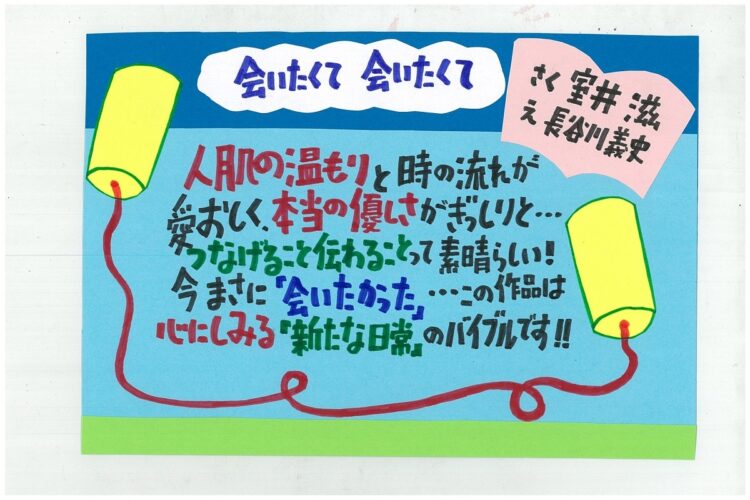 会いたくて 会いたくて
さく 室井 滋
え 長谷川義史
人肌の温もりと時の流れが
愛おしく、本当の優しさがぎっしりと…
つなげること伝わることって素晴らしい!
今まさに「会いたかった」…この作品は
心にしみる『新たな日常』のバイブルです!!